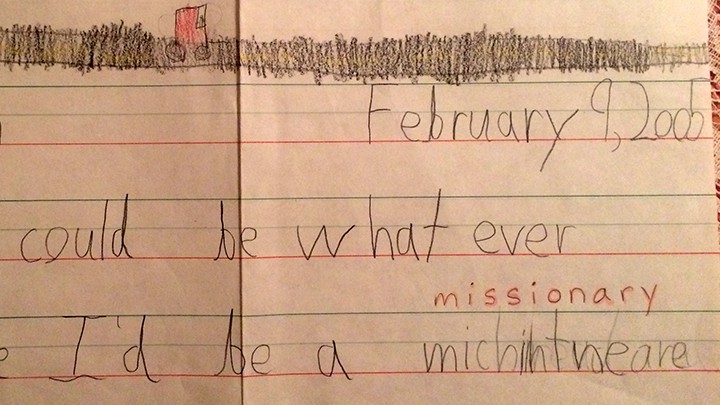 February 9, 2005
could be what ever
missionary
I'd be a